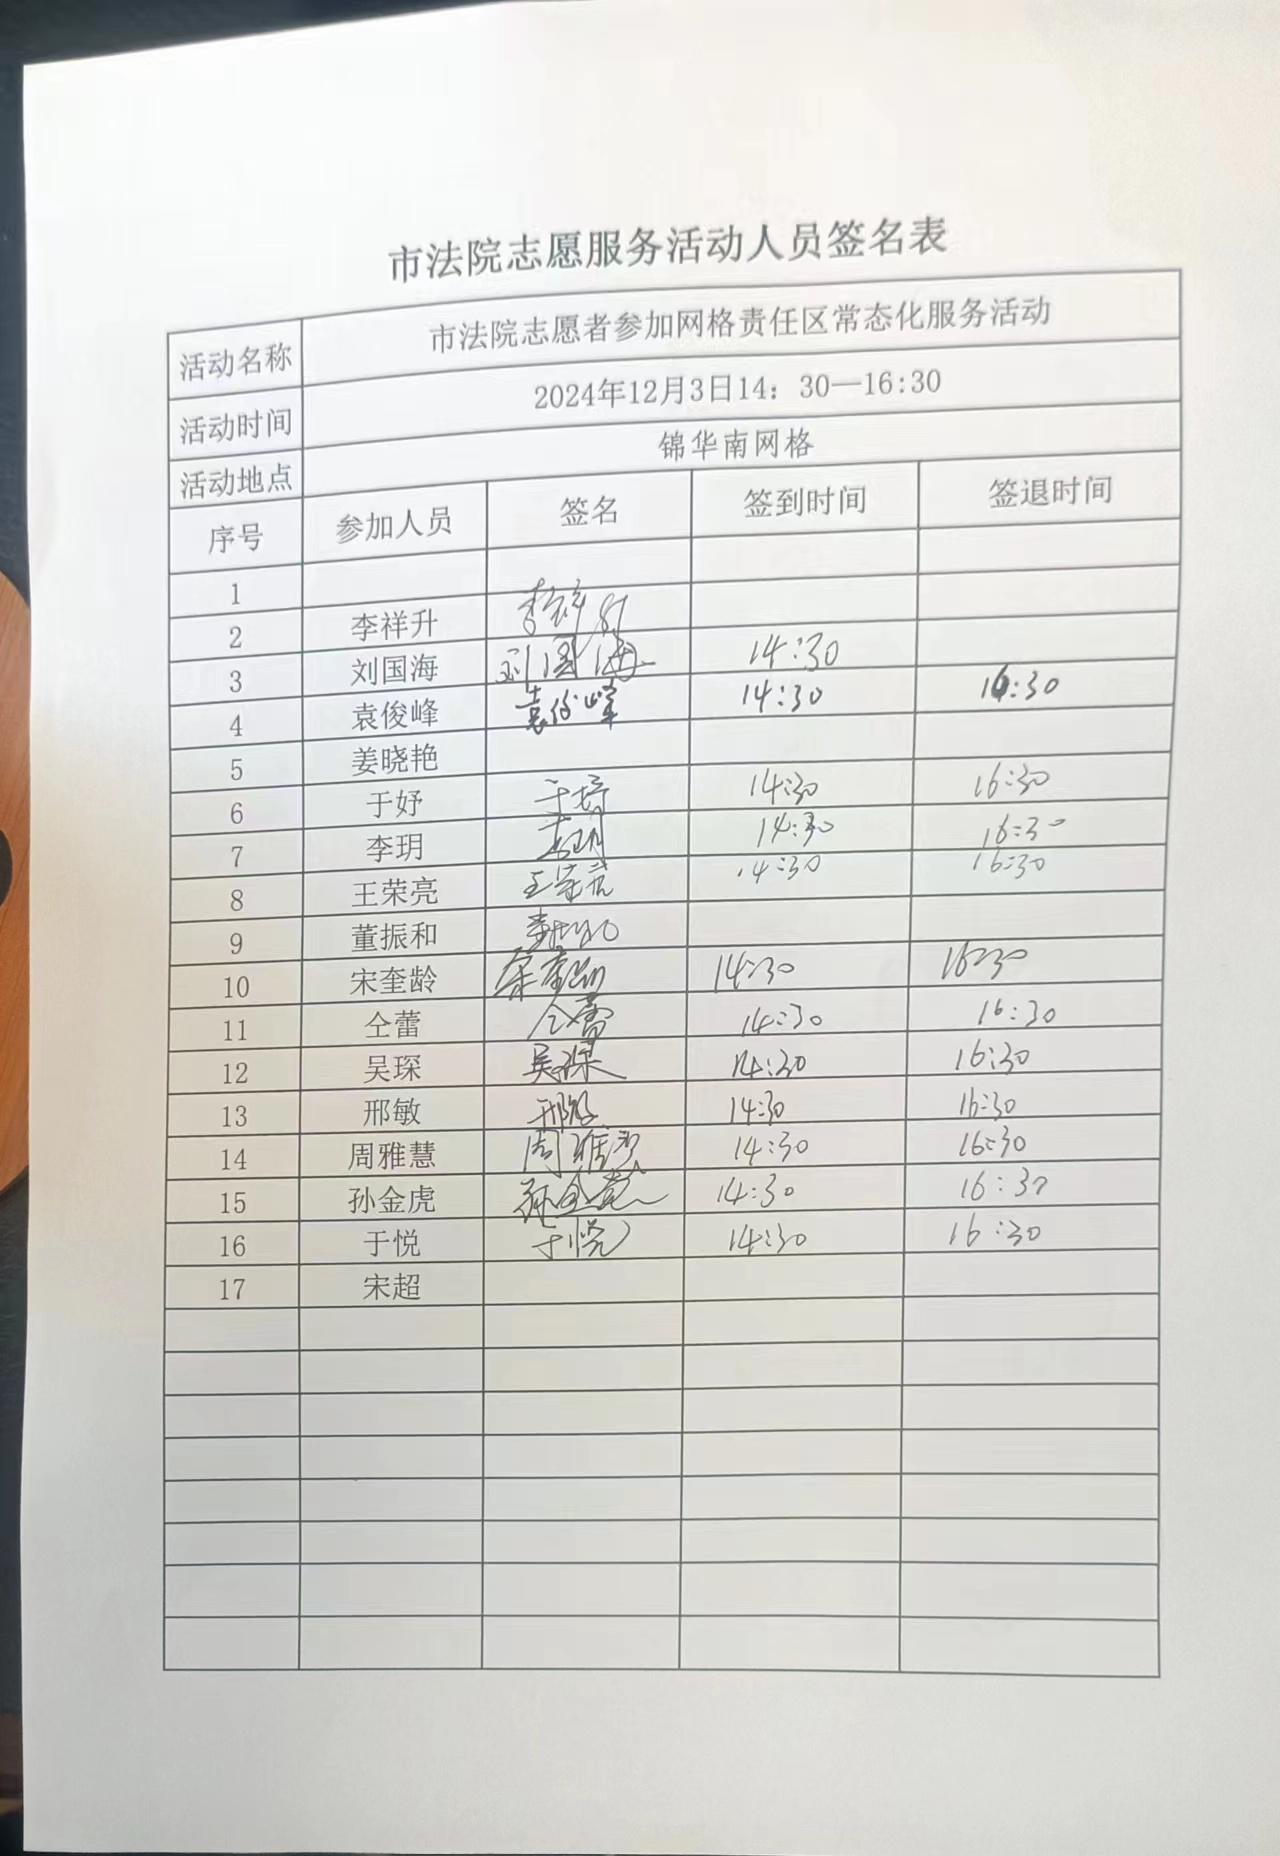 市法院志愿服务活动人员签名表
活动名称 市法院志愿者参加网格责任区常态化服务活动
活动时间 2024年12月3日14：30—16:30
活动地点 锦华南网格
序号 参加人员 签名 签到时间 签退时间
1
2 李祥升 李祥升
3 刘国海 刘国海 14:30
4 袁俊峰 袁俊峰 14:30 16:30
5 姜晓艳
6 于妤 14:30 16:30
7 李玥 李玥 14:30 16:30
8 王荣亮 王荣亮 14:30 16:30
9 董振和
10 宋奎龄 宋奎龄 14:30 16:30
11 仝蕾 仝蕾 14:30 16:30
12 吴琛 吴琛 14:30 16:30
13 邢敏 邢敏 14:30 16:30
14 周雅慧 周雅慧 14:30 16:30
15 孙金虎 孙金虎 14:30 16:30
16 于悦 于悦 14:30 16:30
17 宋超